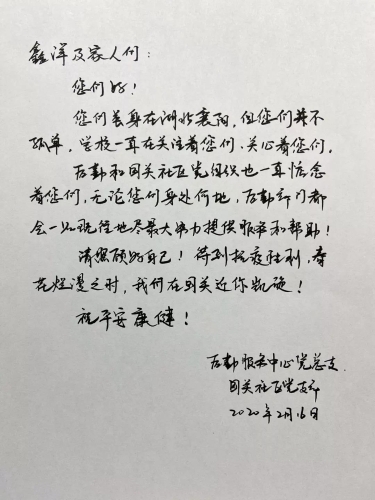 鑫洋及家人们：
您们好！
您们虽身在湖北襄阳，但您们并不
孤单，学校一直在关注着您们、关心着您们，
后勤和国关社区党组织也一直惦念
着您们，无论您们身处何地，后勤部门都
会一如既往地尽最大努力提供服务和帮助！
请照顾好自己！待到抗疫胜利，春
花烂漫之时，我们在国关迎你凯旋！
祝平安康健！
后勤服务中心党总支
国关社区党支部
2020年2月16日